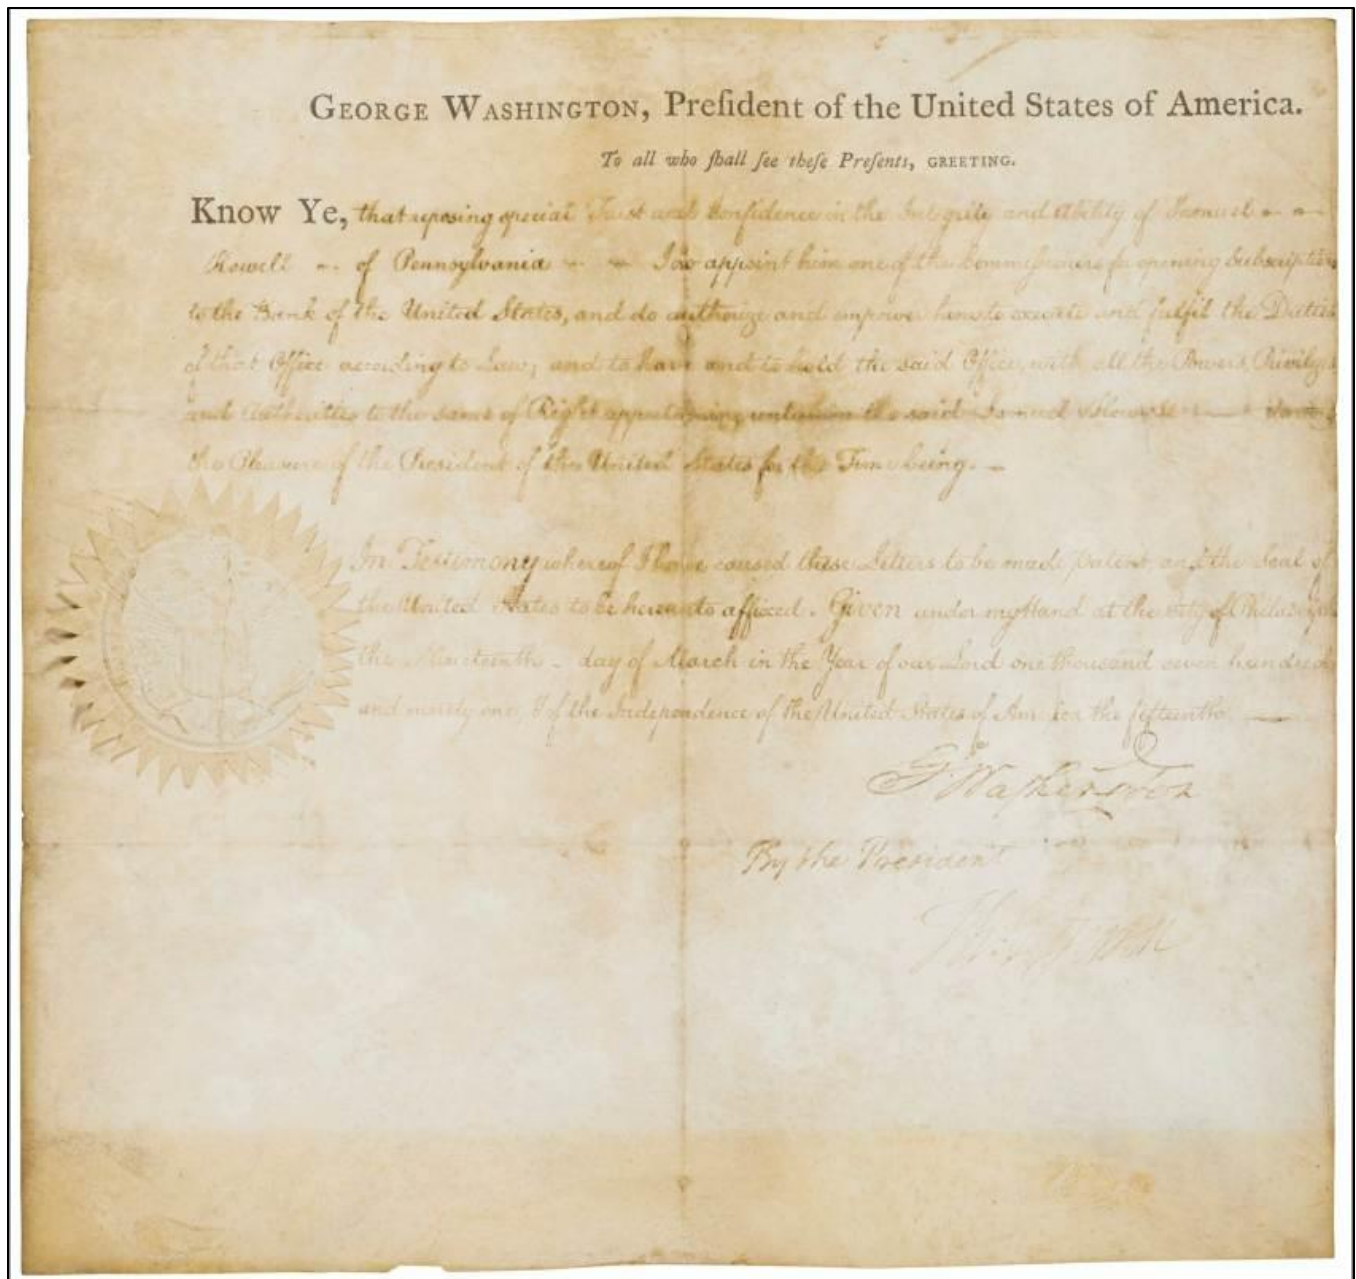 GEORGE WASHINGTON, Preſident of the United States of America.
To all who ſhall ſee theſe Preſents, GREETING.
Know Ye, that reposing special Trust and Confidence in the Integrity and Ability of Samuel
Howell of Pennsylvania I do appoint him one of the Commissioners for opening Subscriptions
to the Bank of the United States, and do authorize and empower him to execute and fulfil the Duties
of that Office according to Law; and to have and to hold the said Office, with all the Powers, Privileges
and Authorities to the same of Right appertaining unto him the said Samuel Howell during
the Pleasure of the President of the United States for the Time being.
In Testimony whereof I have caused these Letters to be made patent and the Seal of
the United States to be hereunto affixed. Given under my Hand at the City of Philadelphia
the Nineteenth day of March in the Year of our Lord one thousand seven hundred
and ninety one, & of the Independence of the United States of America the fifteenth.
G. Washington
By the President